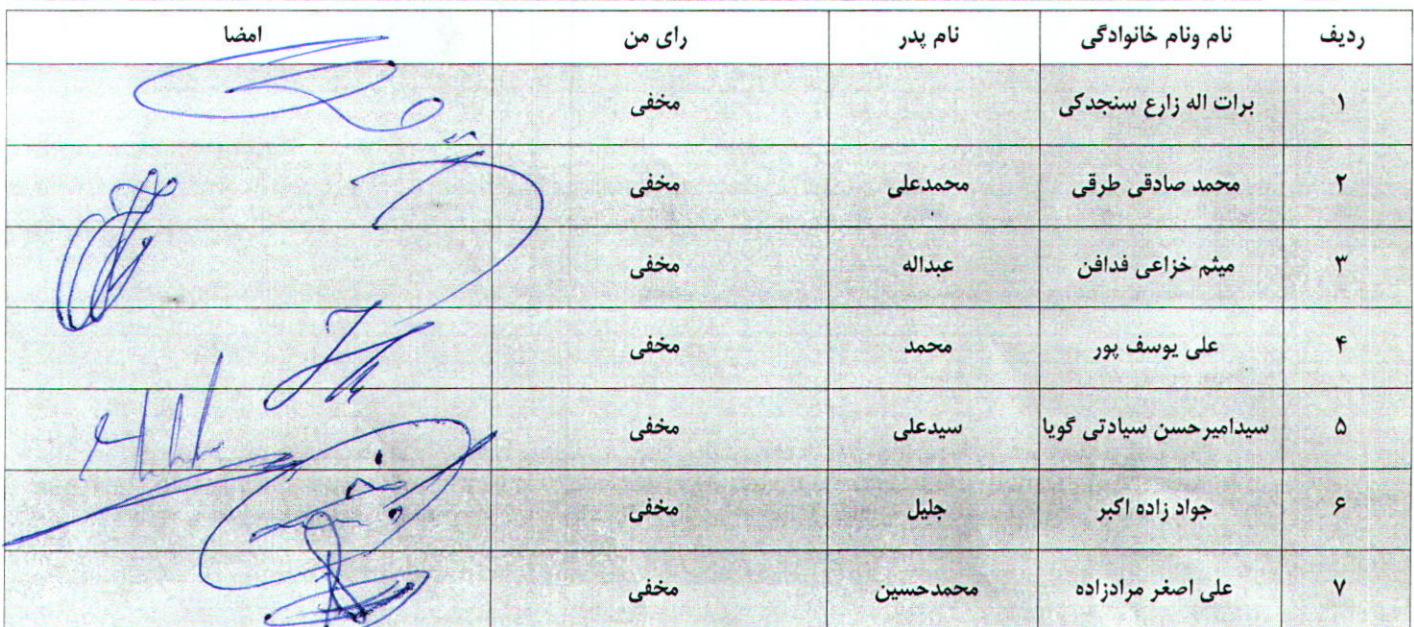 ردیف نام ونام خانوادگی نام پدر رای من امضا
۱ برات اله زارع سنجدکی مخفی
۲ محمد صادقی طرقی محمدعلی مخفی
۳ میثم خزاعی فدافن عبداله مخفی
۴ علی یوسف پور محمد مخفی
۵ سیدامیرحسن سیادتی گویا سیدعلی مخفی
۶ جواد زاده اکبر جلیل مخفی
۷ علی اصغر مرادزاده محمدحسین مخفی